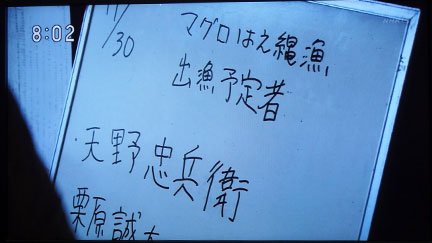 8:02
11/30
マグロはえ縄漁
出漁予定者
・天野忠兵衛
栗原誠